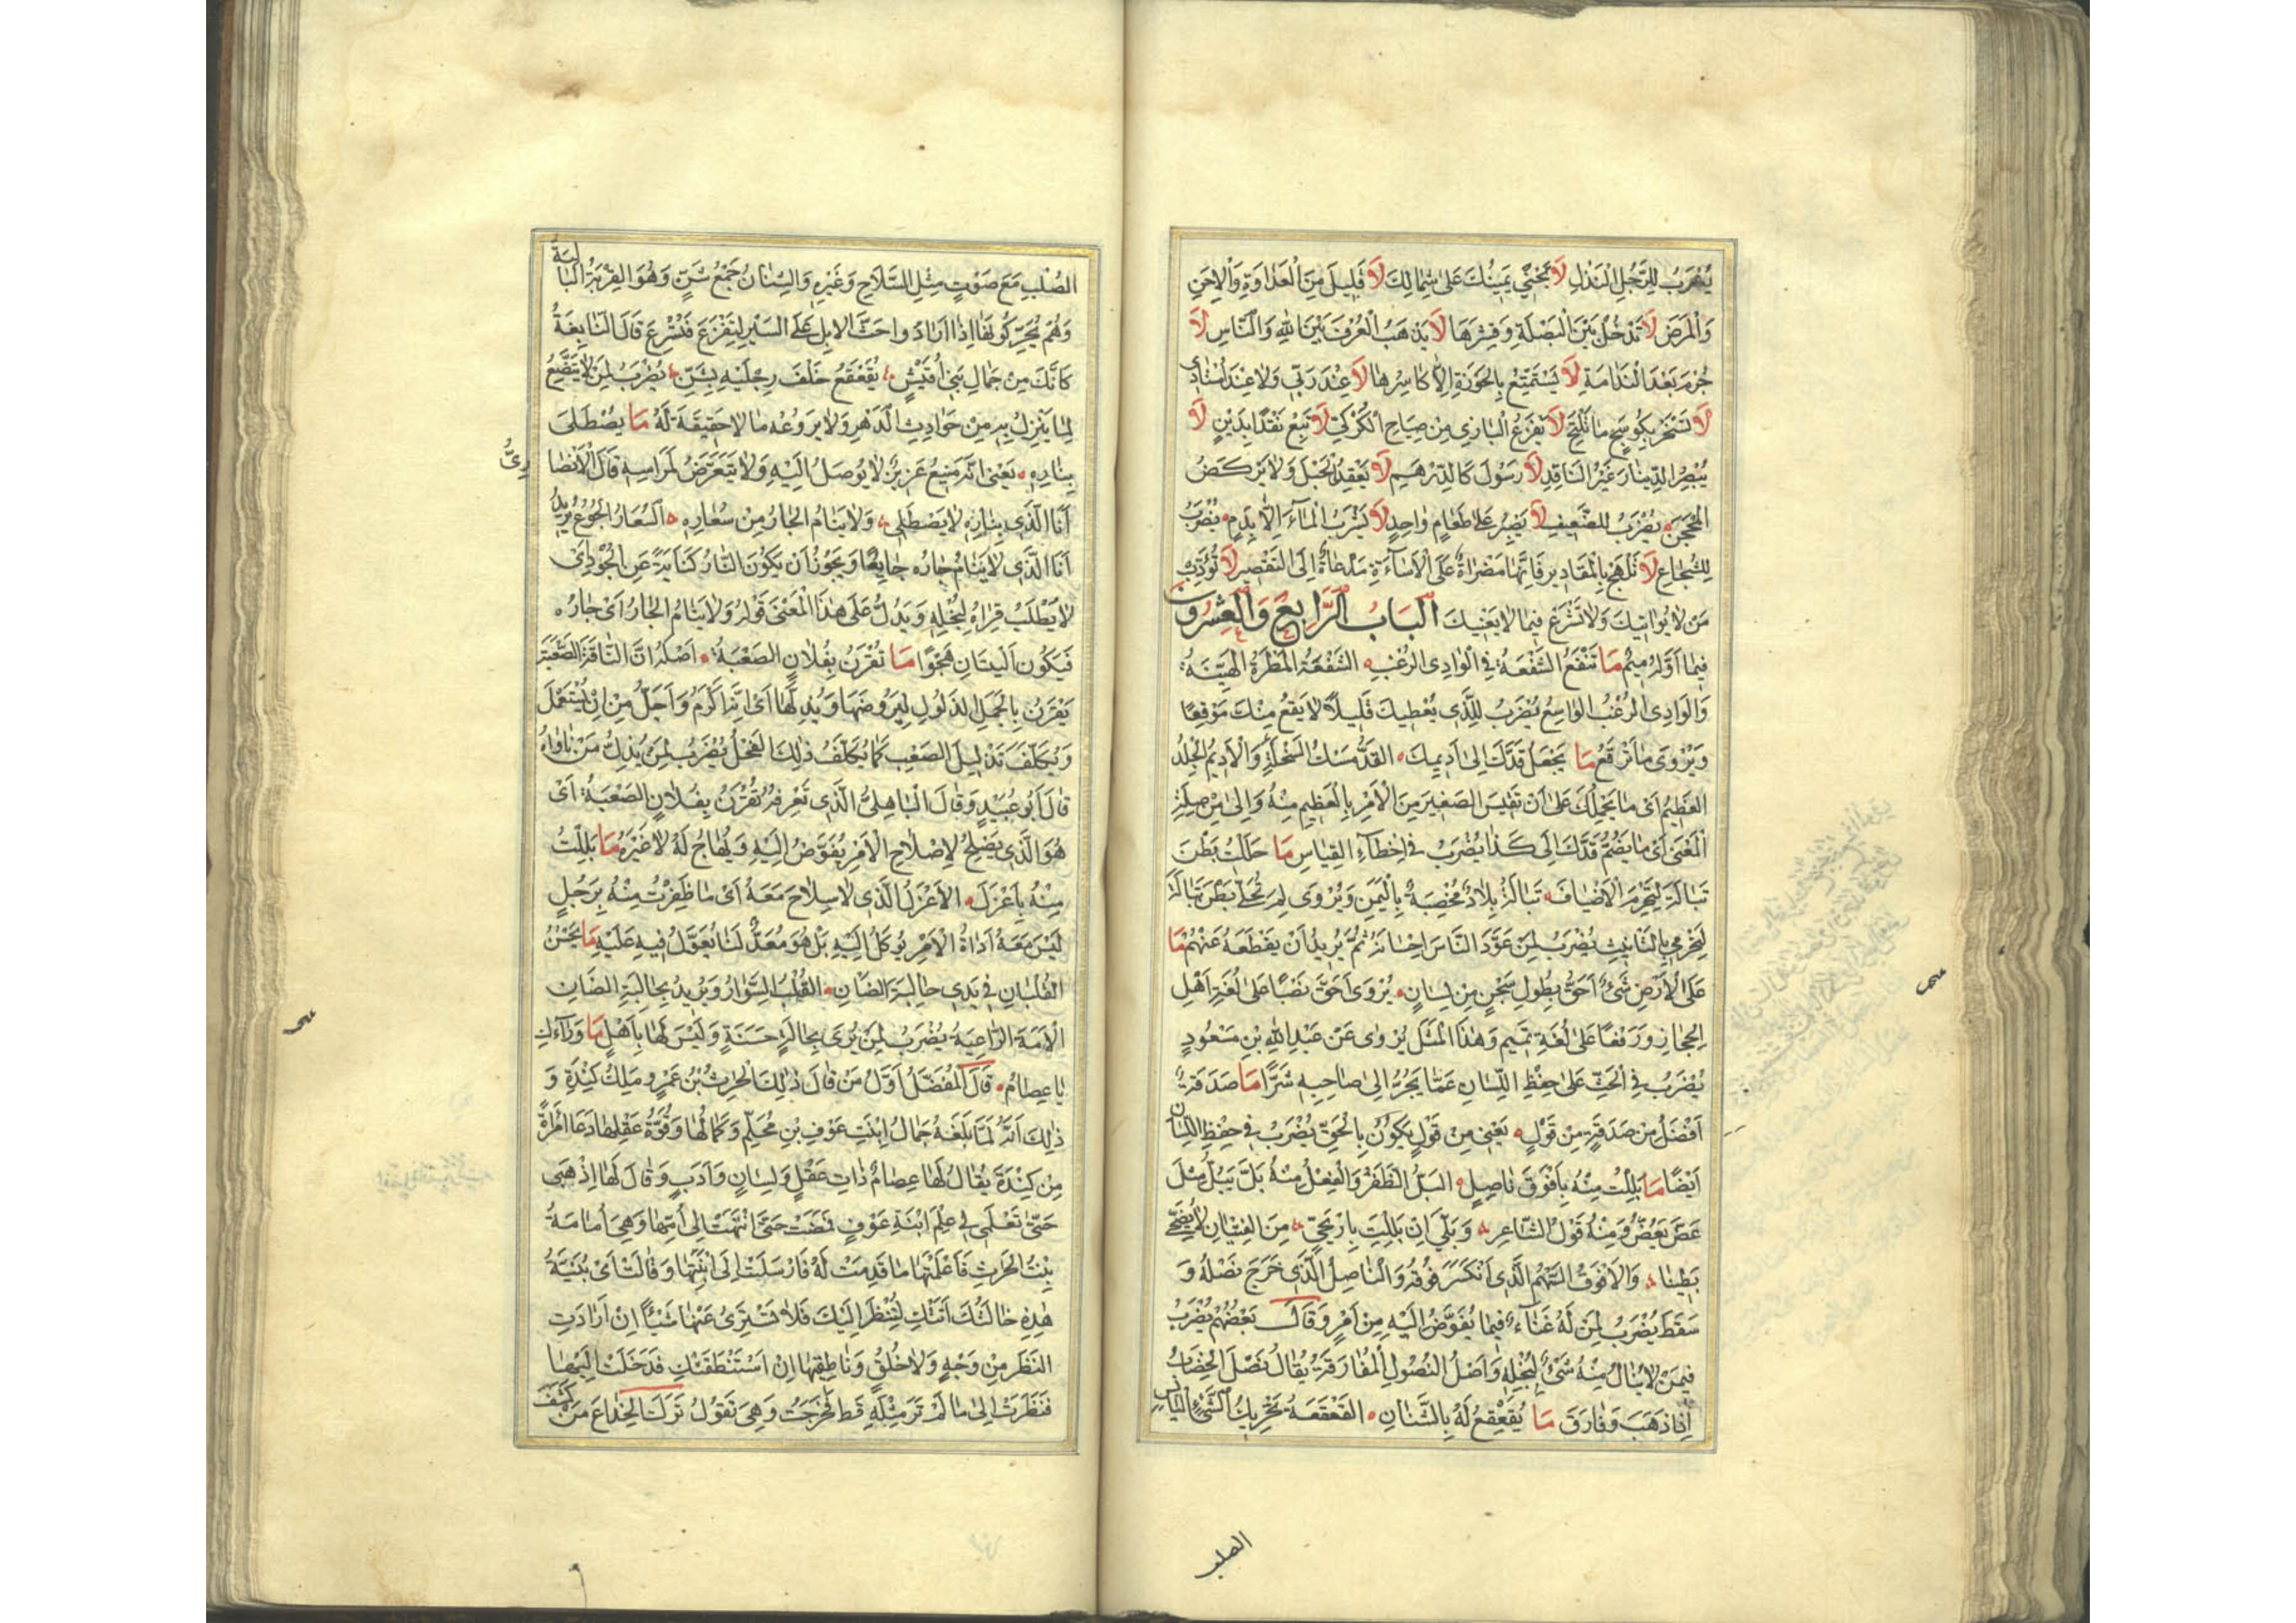 يُضْرَبُ لِلرَّجُلِ النَّذْلِ لَا تَجْنِي يَمِينُكَ عَلَى شِمَالِكَ لَا قَلِيلَ مِنَ الْعَدَاوَةِ وَالْاِحَنِ
وَالْمَرَضِ لَا تَدْخُلْ بَيْنَ الْبَصَلَةِ وَقِشْرِهَا لَا يَذْهَبُ الْعُرْفُ بَيْنَ اللهِ وَالنَّاسِ لَا
جُرْمَ بَعْدَ النَّدَامَةِ لَا يَسْتَمْتِعُ بِالْجَوْزَةِ اِلَّا كَاسِرُهَا لَا عِنْدَ رَبِّي وَلَا عِنْدَ اُسْتَاذِي
لَا تَسْخَرْ بِكَوْسَجٍ مَا لَمْ تَلْتَحِ لَا يَفْزَعُ الْبَازِي مِنْ صِيَاحِ الْكُرْكِيِّ لَا تَبِعْ نَقْدًا بِدَيْنٍ لَا
يُبْصِرُ الدِّينَارَ غَيْرُ النَّاقِدِ لَا رَسُولَ كَالدِّرْهَمِ لَا يَعْقِدُ الْحَبْلَ وَلَا يَرْكُضُ
الْمِحْجَنَ يُضْرَبُ لِلضَّعِيفِ لَا يَصْبِرُ عَلَى طَعَامٍ وَاحِدٍ لَا يَشْرَبُ الْمَاءَ اِلَّا بِدَمٍ يُضْرَبُ
لِلشُّجَاعِ لَا تَلْهَجْ بِالْمَقَادِيرِ فَاِنَّهَا مَضْرَاةٌ عَلَى الْاَسَاءَةِ مَدْعَاةٌ اِلَى التَّقْصِيرِ لَا تُؤَدِّبْ
مَنْ لَا يُوَاتِيكَ وَلَا تُسْرِعْ فِيمَا لَا يَعْنِيكَ الْبَابُ الرَّابِعُ وَالْعِشْرُونَ
فِيمَا اَوَّلُهُ مِيمٌ مَا تَنْفَعُ الشَّفْعَةُ فِي الْوَادِي الرُّغُبِ الشَّفْعَةُ الْمَطْرَةُ الْهَيِّنَةُ
وَالْوَادِي الرُّغُبُ الْوَاسِعُ يُضْرَبُ لِلَّذِي يُعْطِيكَ قَلِيلًا لَا يَقَعُ مِنْكَ مَوْقِعًا
وَيُرْوَى مَا تَرْقَعُ مَا يَجْعَلُ قَدَّكَ اِلَى اَدِيمِكَ الْقَدُّ مَسْكُ السَّخْلَةِ وَالْاَدِيمُ الْجِلْدُ
الْعَظِيمُ اَيْ مَا يَحْمِلُكَ عَلَى اَنْ تَقِيسَ الصَّغِيرَ مِنَ الْاَمْرِ بِالْعَظِيمِ مِنْهُ وَاِلَى مِنْ صِلَةِ
الْمَعْنَى اَيْ مَا يَضُمُّ قَدَّكَ اِلَى كَذَا يُضْرَبُ فِي اِخْطَاءِ الْقِيَاسِ مَا حَلَلْتَ بَطْنَ
تَبَالَةَ لِتَحْرِمَ الْاَضْيَافَ تَبَالَةُ بِلَادٌ مُخْصِبَةٌ بِالْيَمَنِ وَيُرْوَى لَمْ تَحُلِّي بَطْنَ تَبَالَةَ
لِتَحْرِمِي بِالتَّأْنِيثِ يُضْرَبُ لِمَنْ عَوَّدَ النَّاسَ اِحْسَانَهُ ثُمَّ يُرِيدُ اَنْ يَقْطَعَهُ عَنْهُمْ مَا
عَلَى الْاَرْضِ شَيْءٌ اَحَقُّ بِطُولِ سَجْنٍ مِنْ لِسَانٍ يُرْوَى اَحَقَّ نَصْبًا عَلَى لُغَةِ اَهْلِ
الْحِجَازِ وَرَفْعًا عَلَى لُغَةِ تَمِيمٍ وَهٰذَا الْمَثَلُ يُرْوَى عَنْ عَبْدِ اللهِ بْنِ مَسْعُودٍ
يُضْرَبُ فِي الْحَثِّ عَلَى حِفْظِ اللِّسَانِ عَمَّا يَجُرُّ اِلَى صَاحِبِهِ شَرًّا مَا صَدَقَةٌ
اَفْضَلُ مِنْ صَدَقَةٍ مِنْ قَوْلٍ يَعْنِي مِنْ قَوْلٍ يَكُونُ بِالْحَقِّ يُضْرَبُ فِي حِفْظِ اللِّسَانِ
اَيْضًا مَا بَلِلْتُ مِنْهُ بِاَفْوَقَ نَاصِلٍ الْبَلُّ الظَّفَرُ وَالْفِعْلُ مِنْهُ بَلَّ يَبَلُّ مِثْلَ
عَضَّ يَعَضُّ وَمِنْهُ قَوْلُ الشَّاعِرِ وَبَلِّي اِنْ بَلِلْتِ بِاَرْيَحِيٍّ مِنَ الْفِتْيَانِ لَا يُضْحِي
بَطِينَا وَالْاَفْوَقُ السَّهْمُ الَّذِي انْكَسَرَ فُوقُهُ وَالنَّاصِلُ الَّذِي خَرَجَ نَصْلُهُ وَ
سَقَطَ يُضْرَبُ لِمَنْ لَهُ غَنَاءٌ فِيمَا يُفَوَّضُ اِلَيْهِ مِنْ اَمْرٍ وَقَالَ بَعْضُهُمْ يُضْرَبُ
فِيمَنْ لَا يُنَالُ مِنْهُ شَيْءٌ لِبُخْلِهِ وَاَصْلُ النُّصُولِ الْمُفَارَقَةُ يُقَالُ نَصَلَ الْخِضَابُ
اِذَا ذَهَبَ وَفَارَقَ مَا يُقَعْقَعُ لَهُ بِالشِّنَانِ الْقَعْقَعَةُ تَحْرِيكُ الشَّيْءِ الْيَابِسِ
الصلب
الصُّلْبِ مَعَ صَوْتٍ مِثْلِ السِّلَاحِ وَغَيْرِهِ وَالشِّنَانُ جَمْعُ شَنٍّ وَهُوَ الْقِرْبَةُ الْبَالِيَةُ
وَهُمْ يُحَرِّكُونَهَا اِذَا اَرَادُوا حَثَّ الْاِبِلِ عَلَى السَّيْرِ لِتَفْزَعَ فَتُسْرِعَ قَالَ النَّابِغَةُ
كَاَنَّكَ مِنْ جِمَالِ بَنِي اُقَيْشٍ يُقَعْقَعُ خَلْفَ رِجْلَيْهِ بِشَنِّ يُضْرَبُ لِمَنْ لَا يَتَّضِعُ
لِمَا يَنْزِلُ بِهِ مِنْ حَوَادِثِ الدَّهْرِ وَلَا يَرُوعُهُ مَا لَا حَقِيقَةَ لَهُ مَا يُصْطَلَى
بِنَارِهِ يَعْنِي اَنَّهُ مَنِيعٌ عَزِيزٌ لَا يُوصَلُ اِلَيْهِ وَلَا يُتَعَرَّضُ لِمَرَاسِهِ قَالَ الْاَنْصَارِيُّ
اَنَا الَّذِي بِنَارِهِ لَا يُصْطَلَى وَلَا يَنَامُ الْجَارُ مِنْ سُعَارِهِ السُّعَارُ الْجُوعُ يُرِيدُ
اَنَا الَّذِي لَا يَنَامُ جَارُهُ جَائِعًا وَيَجُوزُ اَنْ يَكُونَ النَّارُ كِنَايَةً عَنِ الْجُودِ اَيْ
لَا يُطْلَبُ قِرَاهُ لِبُخْلِهِ وَيَدُلُّ عَلَى هٰذَا الْمَعْنَى قَوْلُهُ وَلَا يَنَامُ الْجَارُ اَيْ جَارُهُ
فَيَكُونُ الْبَيْتَانِ هَجْوًا مَا تُقْرَنُ بِفُلَانٍ الصَّعْبَةُ اَصْلُهُ اَنَّ النَّاقَةَ الصَّعْبَةَ
يُقْرَنُ بِالْجَمَلِ الذَّلُولِ لِيَرُوضَهَا وَيُذِلَّهَا اَيْ اِنَّهُ اَكْرَمُ وَاَجَلُّ مِنْ اَنْ يُسْتَعْمَلَ
وَيُكَلَّفَ تَذْلِيلَ الصَّعْبِ كَمَا يُكَلَّفُ ذٰلِكَ الْفَحْلُ يُضْرَبُ لِمَنْ يُذِلُّ مَنْ نَاوَاهُ
قَالَ اَبُو عُبَيْدٍ وَقَالَ الْبَاهِلِيُّ الَّذِي نَعْرِفُهُ تُقْرَنُ بِفُلَانٍ الصَّعْبَةُ اَيْ
هُوَ الَّذِي يَصْلُحُ لِاِصْلَاحِ الْاَمْرِ يُفَوَّضُ اِلَيْهِ وَيُهَاجُ لَهُ لَا غَيْرُهُ مَا بَلِلْتُ
مِنْهُ بِاَعْزَلَ الْاَعْزَلُ الَّذِي لَا سِلَاحَ مَعَهُ اَيْ مَا ظَفِرْتُ مِنْهُ بِرَجُلٍ
لَيْسَ مَعَهُ اَدَاةُ الْاَمْرِ يُوكَلُ اِلَيْهِ بَلْ هُوَ مُعَدٌّ لِمَا يُعَوَّلُ فِيهِ عَلَيْهِ مَا يَحْسُنُ
الْقُلْبَانِ فِي يَدَيْ حَالِبَةِ الضَّأْنِ الْقُلْبُ السِّوَارُ وَيُرِيدُ بِحَالِبَةِ الضَّأْنِ
الْاَمَةَ الرَّاعِيَةَ يُضْرَبُ لِمَنْ يُرَى بِحَالَةٍ حَسَنَةٍ وَلَيْسَ لَهَا بِاَهْلٍ مَا وَرَاءَكِ
يَا عِصَامُ قَالَ الْمُفَضَّلُ اَوَّلُ مَنْ قَالَ ذٰلِكَ الْحَرِثُ بْنُ عَمْرٍو مَلِكُ كِنْدَةَ وَ
ذٰلِكَ اَنَّهُ لَمَّا بَلَغَهُ جَمَالُ ابْنَتِ عَوْفِ بْنِ مُحَلِّمٍ وَكَمَالُهَا وَقُوَّةُ عَقْلِهَا دَعَا امْرَاَةً
مِنْ كِنْدَةَ يُقَالُ لَهَا عِصَامُ ذَاتِ عَقْلٍ وَلِسَانٍ وَاَدَبٍ وَقَالَ لَهَا اِذْهَبِي
حَتَّى تَعْلَمِي لِي عِلْمَ ابْنَةِ عَوْفٍ فَمَضَتْ حَتَّى انْتَهَتْ اِلَى اُمِّهَا وَهِيَ اُمَامَةُ
بِنْتُ الْحَرِثِ فَاَعْلَمَتْهَا مَا قَدِمَتْ لَهُ فَاَرْسَلَتْ اِلَى ابْنَتِهَا وَقَالَتْ اَيْ بُنَيَّةُ
هٰذِهِ خَالَتُكِ اَتَتْكِ لِتَنْظُرَ اِلَيْكِ فَلَا تَسْتَرِي عَنْهَا شَيْئًا اِنْ اَرَادَتِ
النَّظَرَ مِنْ وَجْهٍ وَلَا خُلُقٍ وَنَاطِقِيهَا اِنْ اسْتَنْطَقَتْكِ فَدَخَلَتْ اِلَيْهَا
فَنَظَرَتْ اِلَى مَا لَمْ تَرَ مِثْلَهُ قَطُّ فَخَرَجَتْ وَهِيَ تَقُولُ تَرَكَ الْخِدَاعَ مَنْ كَشَفَ